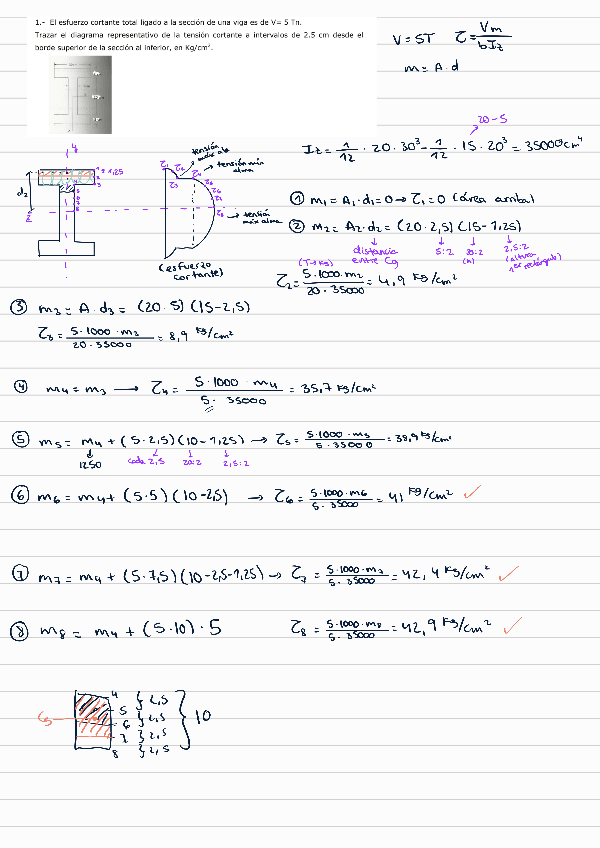 1.- El esfuerzo cortante total ligado a la sección de una viga es de V= 5 Tn.
Trazar el diagrama representativo de la tensión cortante a intervalos de 2.5 cm desde el
borde superior de la sección al inferior, en Kg/cm².
V = 5T   τ = Vm / bIz
m = A·d
20-5
Iz = 1/12 · 20·30³ - 1/12 · 15·20³ = 35000 cm⁴
y
d₂
z
1
2
3
4
5
6
7
8
τ₁ τ₂ τ₃ τ₄ τ₅ τ₆ τ₇ τ₈
tensión
tensión mín
alma
tensión
máx alma
(esfuerzo
cortante)
① m₁ = A₁·d₁ = 0 → τ₁ = 0 (área arriba)
② m₂ = A₂·d₂ = (20·2,5)(15-1,25)
distancia
entre Cg
5:2
2,5:2
(altura
1er rectángulo)
(T→Kg)
τ₂ = 5·1000·m₂ / 20·35000 = 4,9 Kg/cm²
③ m₃ = A·d₃ = (20·5)(15-2,5)
τ₃ = 5·1000·m₃ / 20·35000 = 8,9 Kg/cm²
④ m₄ = m₃ → τ₄ = 5·1000·m₄ / 5·35000 = 35,7 Kg/cm²
⑤ m₅ = m₄ + (5·2,5)(10-1,25) → τ₅ = 5·1000·m₅ / 5·35000 = 38,9 Kg/cm²
1250
cada 2,5
20:2
2,5:2
⑥ m₆ = m₄ + (5·5)(10-2,5) → τ₆ = 5·1000·m₆ / 5·35000 = 41 Kg/cm² ✓
⑦ m₇ = m₄ + (5·7,5)(10-2,5-1,25) → τ₇ = 5·1000·m₇ / 5·35000 = 42,4 Kg/cm² ✓
⑧ m₈ = m₄ + (5·10)·5   τ₈ = 5·1000·m₈ / 5·35000 = 42,9 Kg/cm² ✓
4 } 2,5
5 } 2,5
6 } 2,5
7 } 2,5
8
} 10